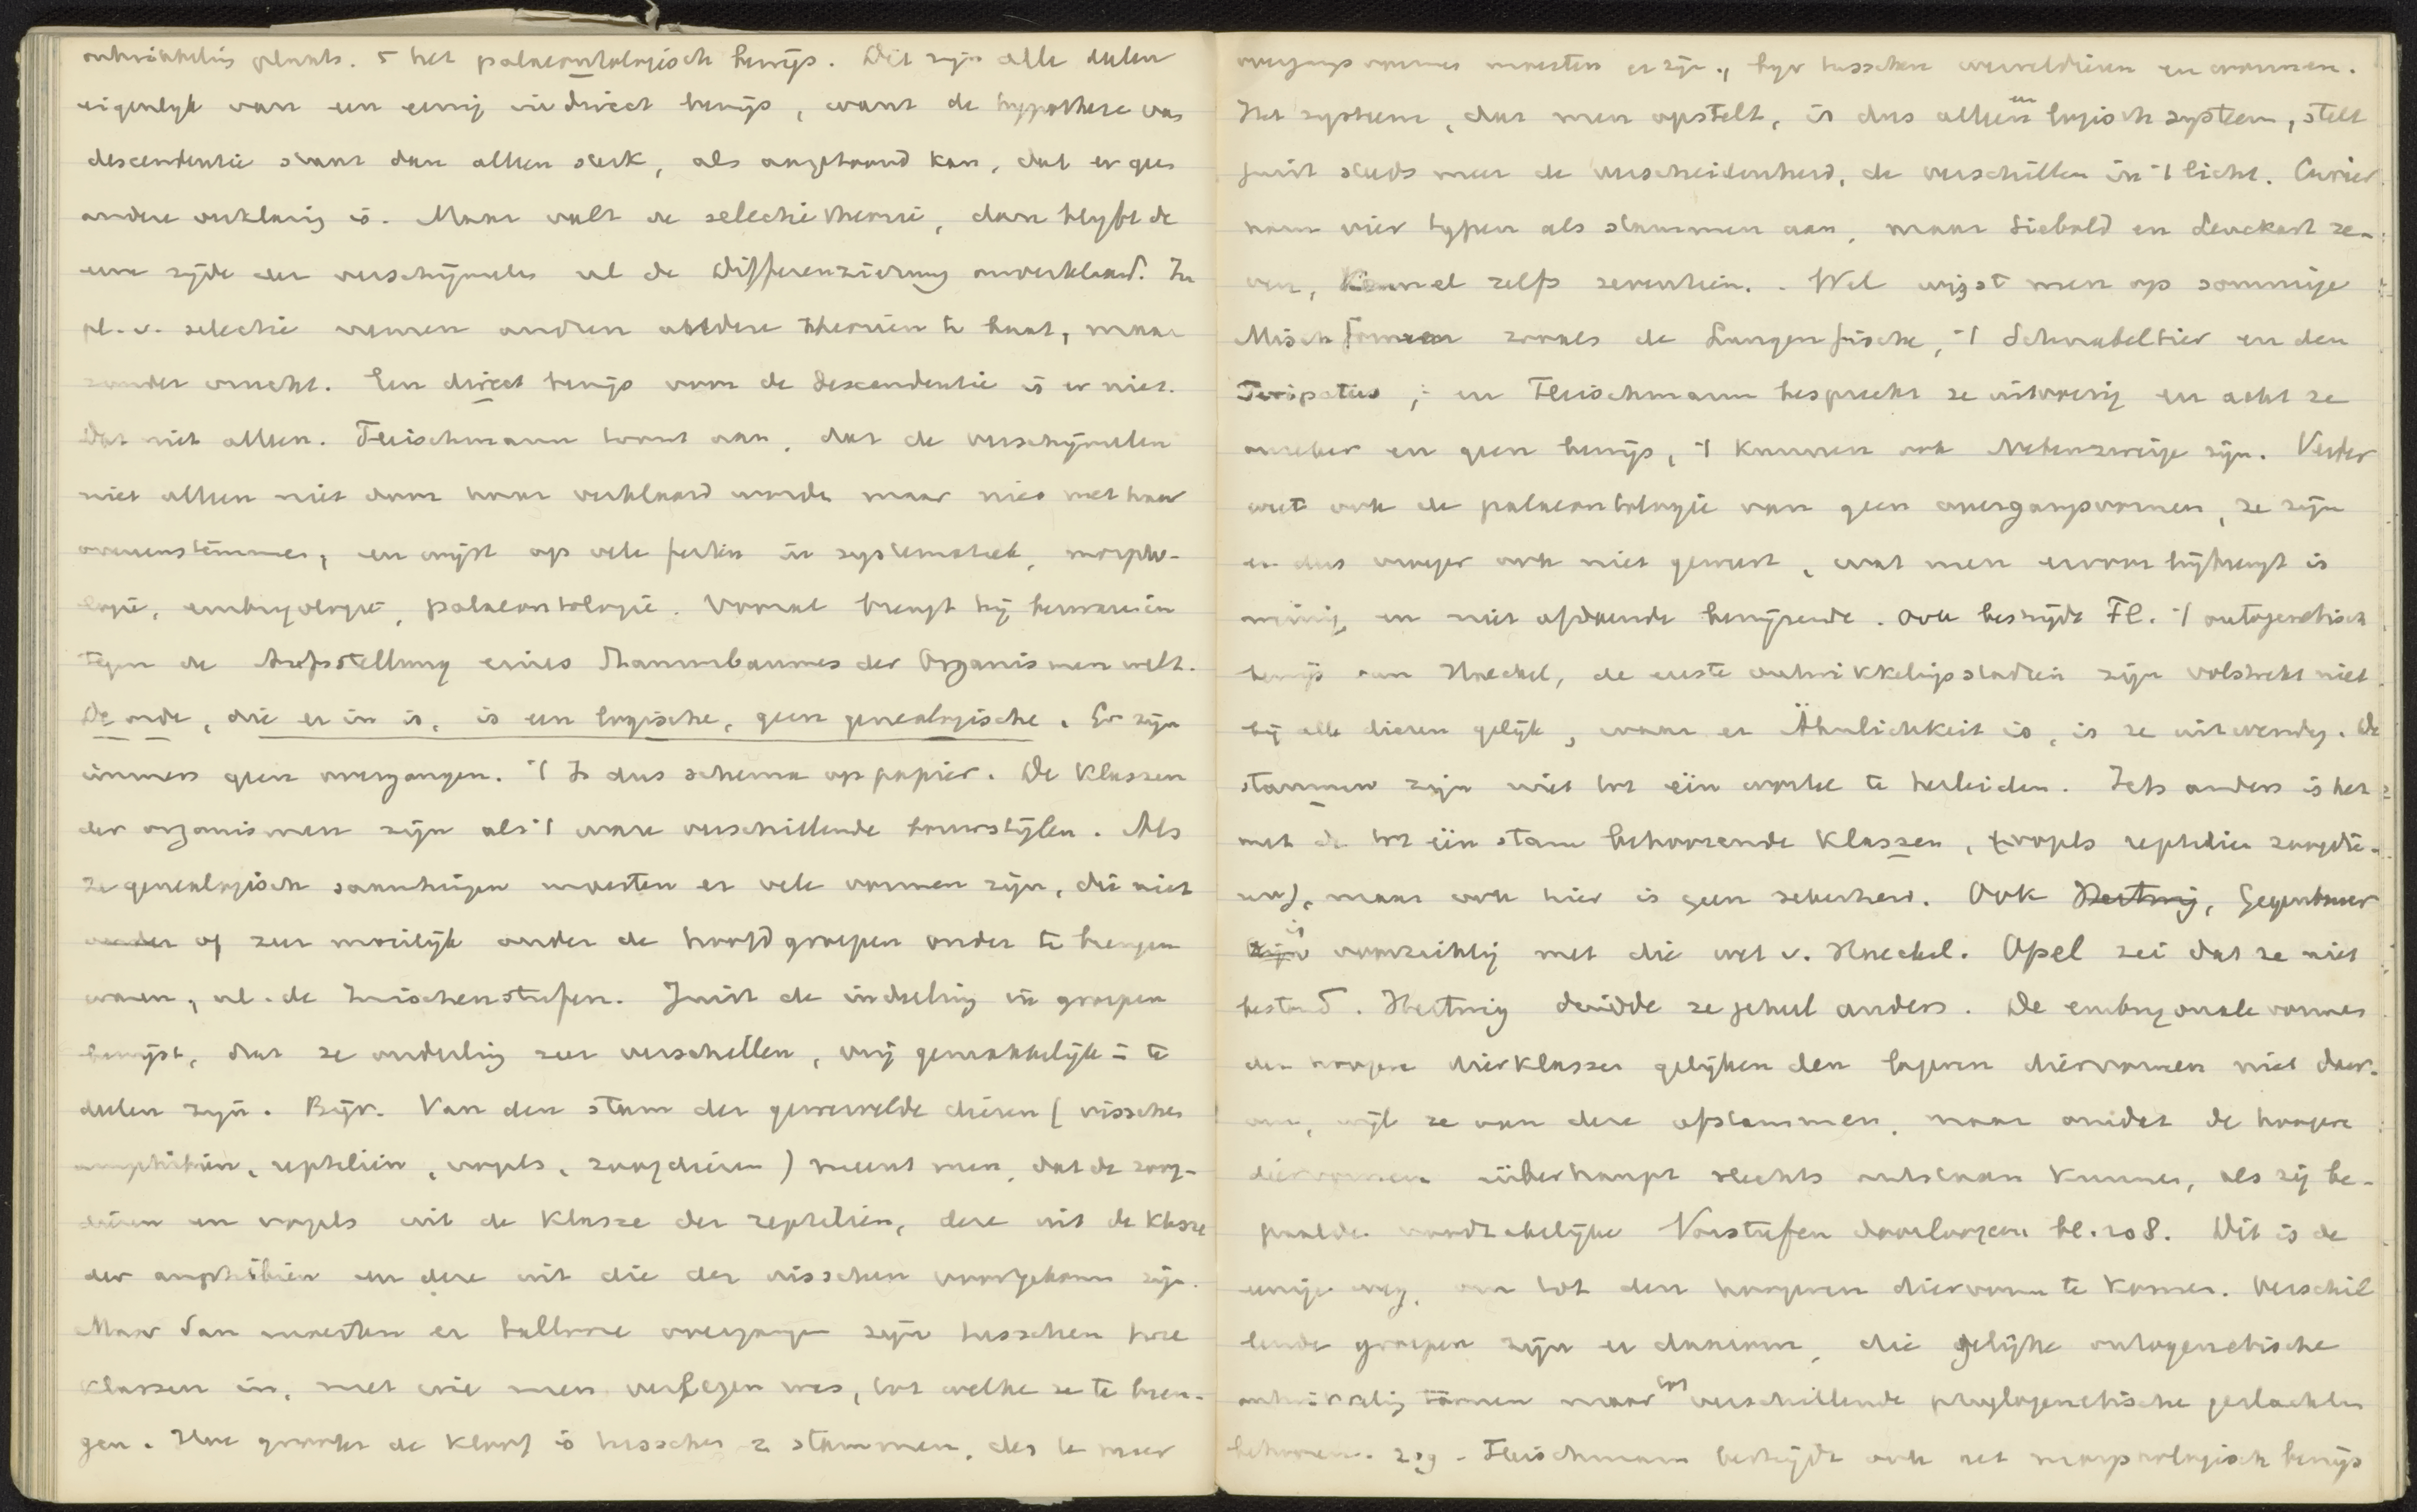 ontwikkeling plaats. 5 het palaeontologisch bewijs. Dit zijn alle delen
eigenlijk van een eenig indirect bewijs, want de hypothese van
descendentie staat dan alleen sterk, als aangetoond kan, dat er geen
andere verklaring is. Maar valt de selectietheorie, dan blijft de
eene zijde der verschijnselen nl de Differenzierung onverklaard. In
pl. v. selectie nemen andren andere theorieën te baat, maar
zonder vrucht. Een direct bewijs voor de descendentie is er niet.
Dat niet alleen. Fleischmann toont aan, dat de verschijnselen
niet alleen niet door haar verklaard worden maar niet met haar
overeenstemmen, en wijst op vele feiten in systematiek, morpho-
logie, embryologie, palaeontologie. Vooral brengt hij bezwaren in
tegen de Aufstellung eines Stammbaumes der Organismenwelt.
De orde, die er in is, is een logische, geen genealogische. Er zijn
immers geen overgangen. 't Is dus schema op papier. De Klassen
der organismen zijn als 't ware verschillende bouwstijlen. Als
ze genealogisch saamhingen moesten er vele vormen zijn, die niet
of zeer moeilijk onder de hoofdgroepen onder te brengen
waren, nl. de Zwischenstufen. Juist de indeeling in groepen
bewijst, dat ze onderling zeer verschillen, vrij gemakkelijk in te
delen zijn. Bijv. Van den stam der gewervelde dieren (visschen
amphibiën, reptiliën, vogels, zoogdieren) meent men, dat de zoog-
dieren en vogels uit de Klasse der reptiliën, deze uit de Klasse
der amphibiën en deze uit die der visschen voortgekomen zijn.
Maar dan moesten er tallooze overgangen zijn tusschen twee
klassen in, met wie men verlegen was, tot welke ze te bren-
gen. Hoe grooter de kloof is tusschen 2 stammen, des te meer
overgangsvormen moesten er zijn, bijv tusschen weekdieren en wormen.
Het systeem, dat men opstelt, is dus alleen een logisch systeem, stelt
juist steeds meer de verscheidenheid, de verschillen in 't licht. Cuvier
nam vier typen als stammen aan, maar Siebold en Leuckart ze-
ven, Kennel zelfs zeventien. Wel wijst men op sommige
Mischformen zooals de Lungenfische, 't Schnabeltier en den
Peripatus, en Fleischmann bespreekt ze uitvoerig en acht ze
onzeker en geen bewijs, 't kunnen ook Nebenzweige zijn. Verder
weet ook de palaeontologie van geen overgangsvormen, ze zijn
er dus vroeger ook niet geweest, wat men ervoor bijbrengt is
weinig en niet afdoende bewijzende. Ook bestrijdt Fl. 't ontogenetisch
bewijs van Haeckel, de eerste ontwikkelingsstadiën zijn volstrekt niet
bij alle dieren gelijk, waar er Ähnlichkeit is, is ze uitwendig. De
stammen zijn niet tot één wortel te herleiden. Iets anders is het
met de tot één stam behoorende Klassen, (vogels reptiliën zoogdie-
ren), maar ook hier is geen zekerheid. Ook Hertwig, Gegenbauer
is voorzichtig met die wet v. Haeckel. Apel zei dat ze niet
bestond. Hertwig duidde ze geheel anders. De embryonale vormen
der hoogere dierklassen gelijken den lageren diervormen niet daar-
om, wijl ze van deze afstammen, maar omdat de hoogere
diervormen überhaupt slechts ontstaan kunnen, als zij be-
paalde noodzakelijke Vorstufen doorloopen bl. 208. Dit is de
eenige weg, om tot den hoogeren diervorm te komen. Verschil
lende groepen zijn er daarom, die gelijke ontogenetische
ontwikkeling toonen maar tot verschillende phylogenetische geslachten
behooren. 209 - Fleischmann bestrijdt ook het morphologisch bewijs